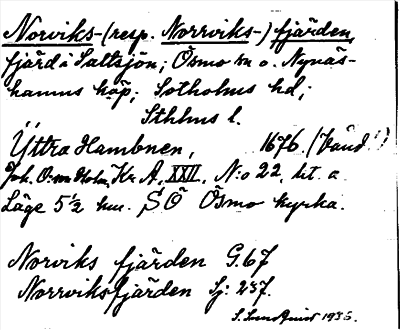 Norviks-(resp. Norrviks-) fjärden,
fjärd i Saltsjön; Ösmo sn o. Nynäs-
hamns köp; Sotholms hd;
Sthlms l.
Yttra Hambnen, 1676.
Joh. Holm, Kr. A. XXII, N:o 22, lit. a.
Läge 5½ km. SÖ Ösmo kyrka.
Norviks fjärden G. 67
Norrviksfjärden Sj: 237.
1935.